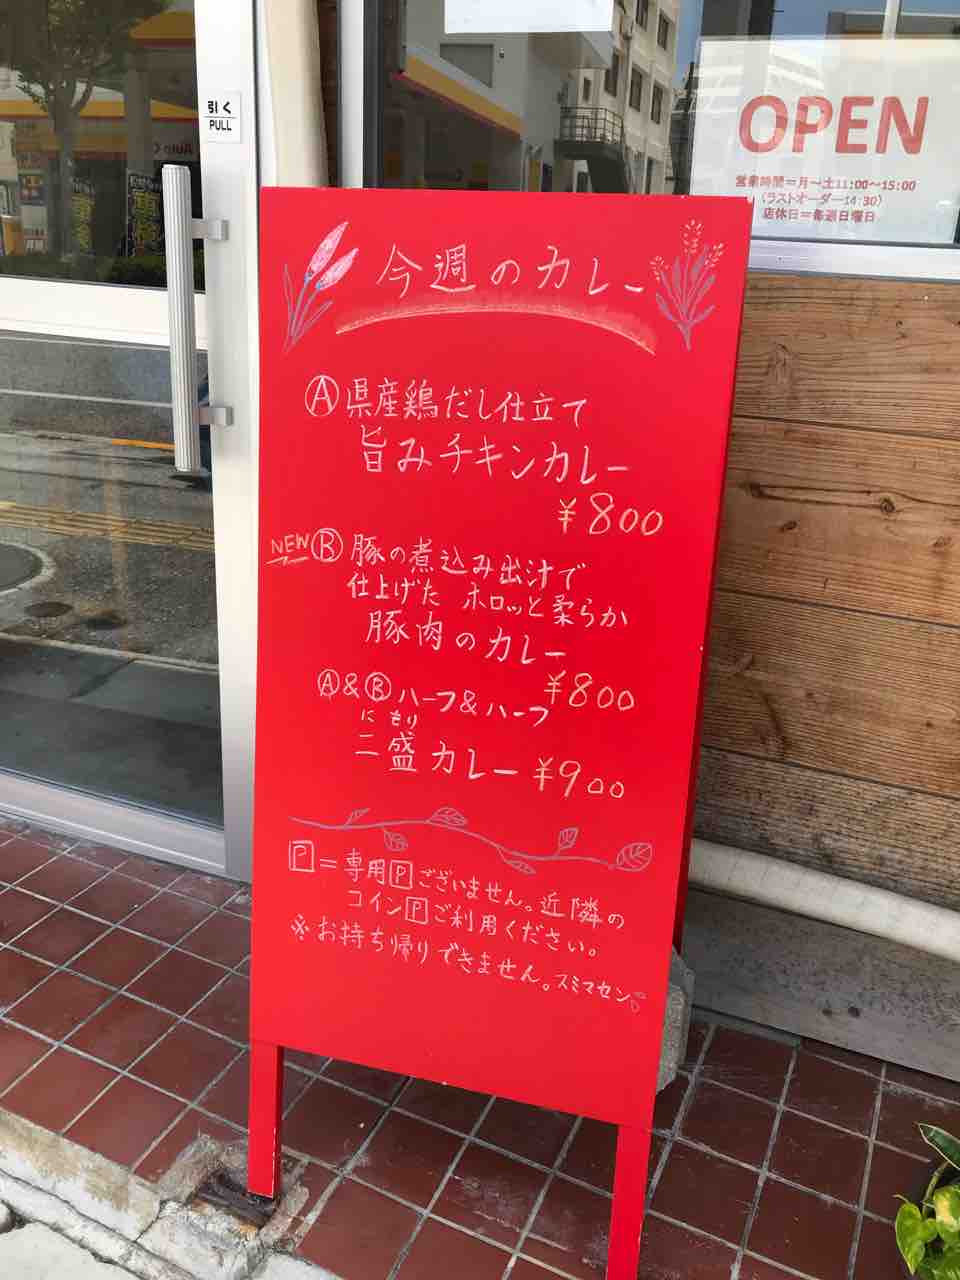 引く
PULL
OPEN
営業時間=月～土11:00～15:00
(ラストオーダー14:30)
店休日=毎週日曜日
今週のカレー
Ⓐ県産鶏だし仕立て
旨みチキンカレー
¥800
NEW Ⓑ豚の煮込み出汁で
仕上げた ホロッと柔らか
豚肉のカレー
¥800
Ⓐ&Ⓑハーフ&ハーフ
に もり
二盛カレー ¥900
🄿=専用🄿ございません。近隣の
コイン🄿ご利用ください。
※お持ち帰りできません。スミマセン。